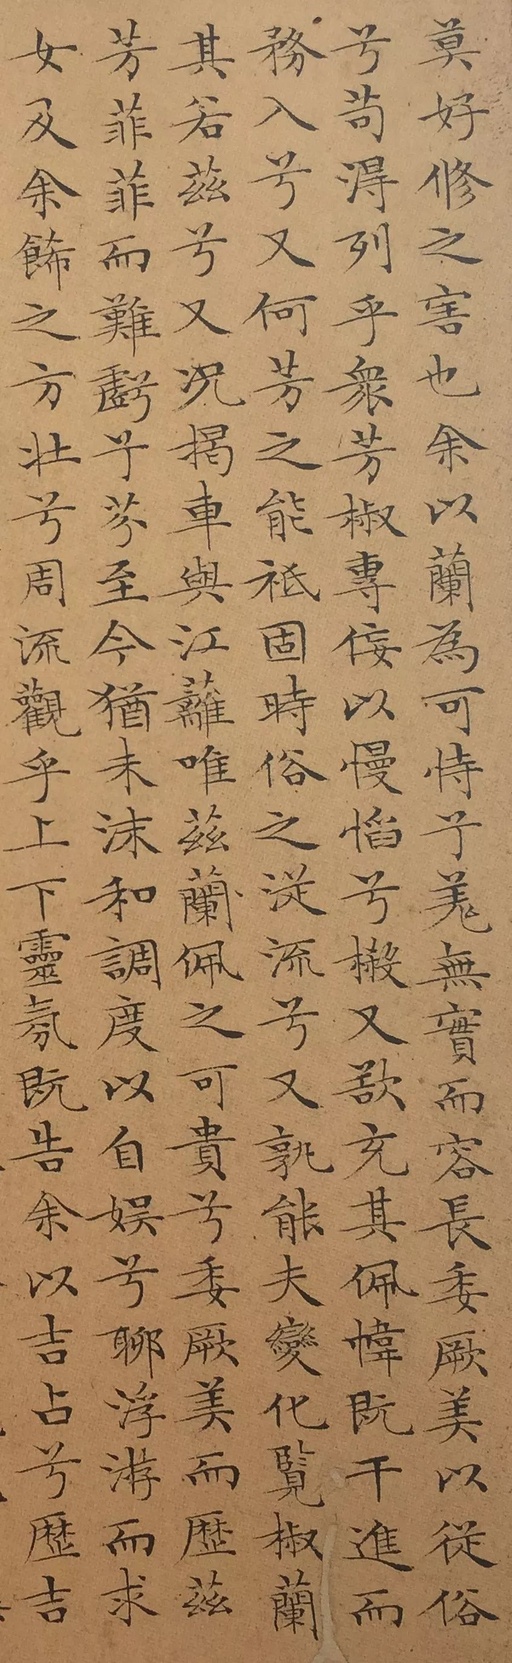 莫好修之害也余以蘭為可恃兮羌無實而容長委厥美以從俗
兮苟得列乎衆芳椒專佞以慢慆兮樧又欲充其佩幃既干進而
務入兮又何芳之能祗固時俗之從流兮又孰能夫變化覽椒蘭
其若茲兮又況揭車與江蘺唯茲蘭佩之可貴兮委厥美而歷茲
芳菲菲而難虧兮芬至今猶未沫和調度以自娱兮聊浮游而求
女及余飾之方壯兮周流觀乎上下靈氛既告余以吉占兮歷吉